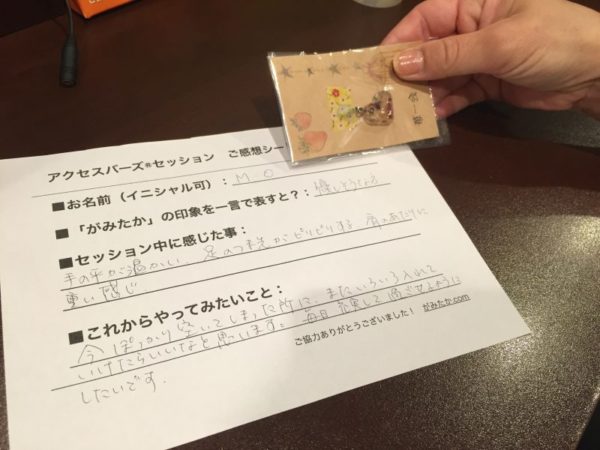 アクセスバーズ®セッション ご感想シー
■お名前（イニシャル可）： M.O
■「がみたか」の印象を一言で表すと？： 優しそうな人
■セッション中に感じた事：
手の平が温かい 足のつま先がピリピリする 肩のあたりに
重い感じ
■これからやってみたいこと：
今 ぽっかり空いてしまった所に、またいろいろ入れて
いけたらいいなと思います。毎日 充実して過ごせるように
したいです.
ご協力ありがとうございました！ がみたか.com